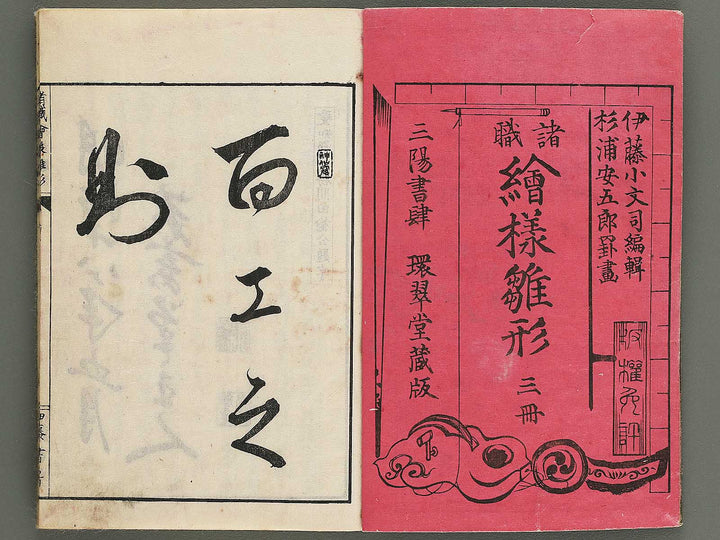 伊藤小文司編輯
杉浦安五郎罫畫
諸職
繪樣雛形 三冊
三陽書肆 環翠堂藏版
版權免許
百工之
則
諸職會樣雛形